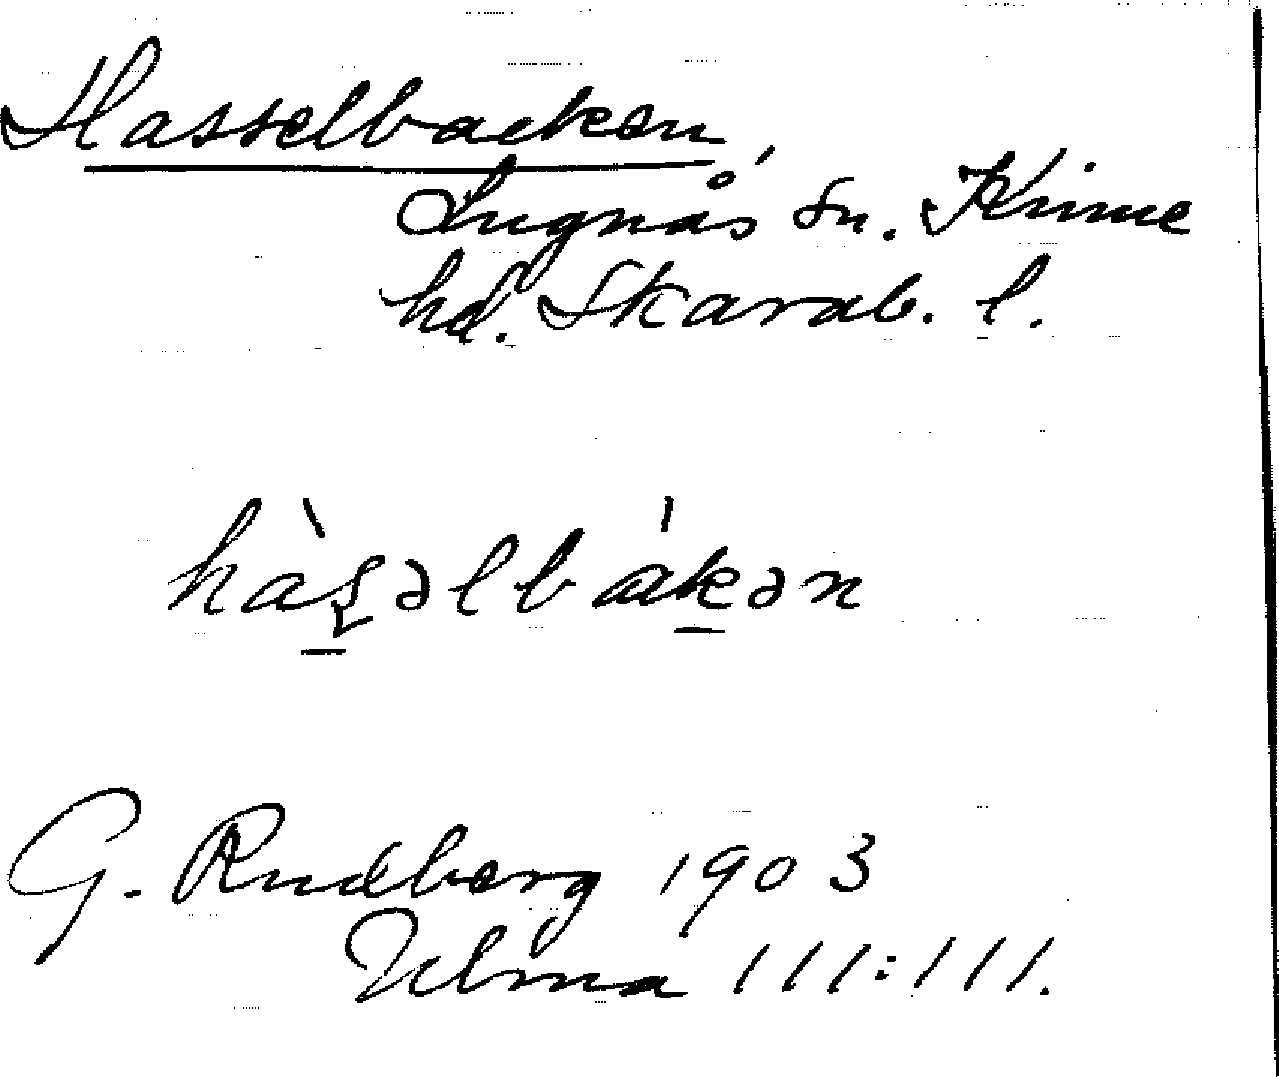 Hasselbacken
Lugnås sn. Kinne
hd. Skarab. l.
hàs̠əlbák̠ən
G. Rudberg 1903
Ulma 111:111.